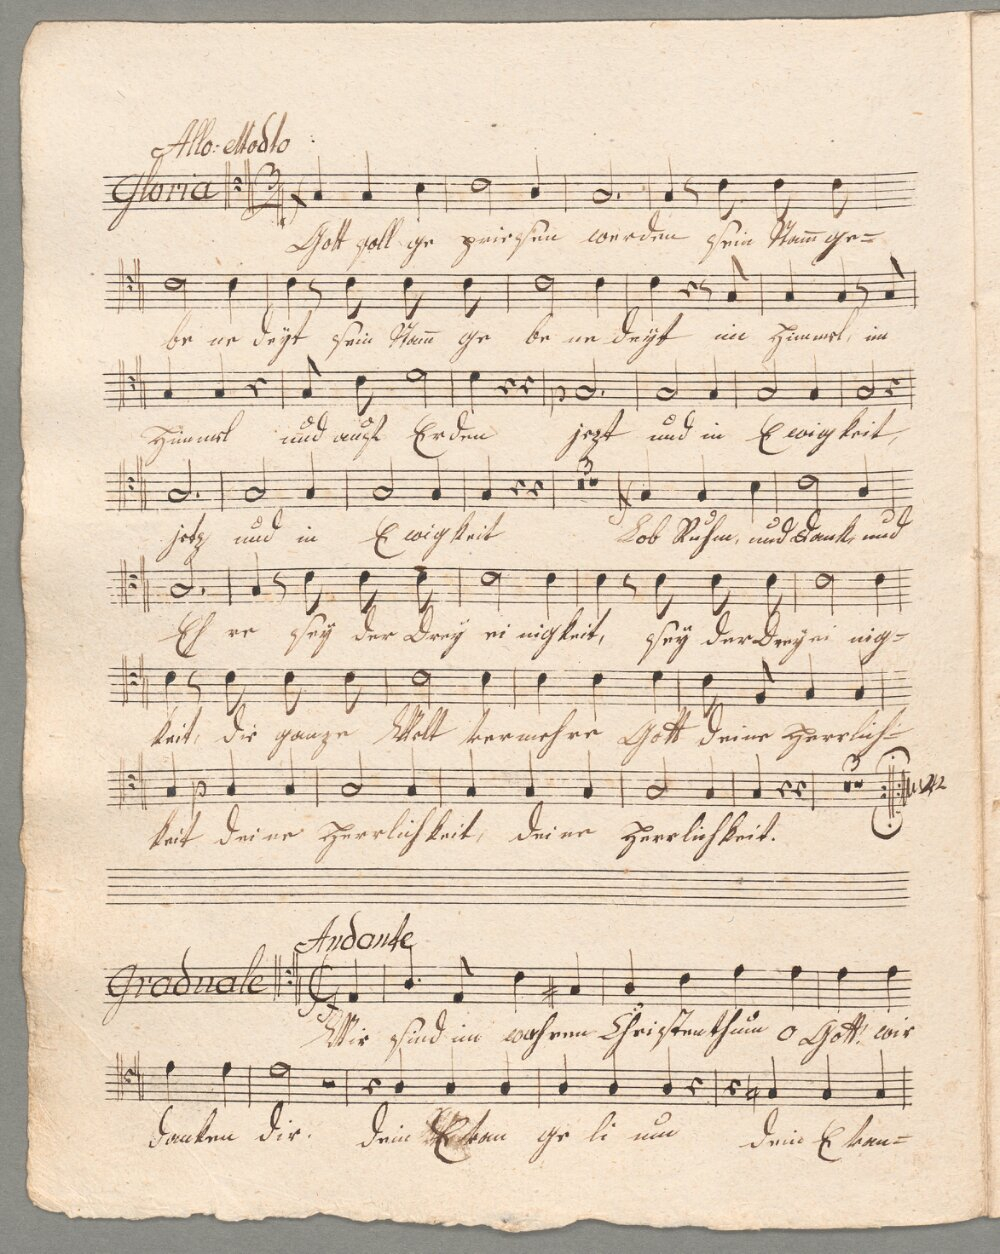 Allo: Modto
Gloria
Gott soll ge priesen werden sein Nam̅ ge=
be ne deyt sein Nam̅ ge be ne deyt im Himmel, im
Himmel und auf Erden jezt und in Ewigkeit,
3
jetz und in Ewigkeit Lob Ruhm, und Dank, und
Eh re sey der Drey ei nigkeit, sey der Drey ei nig=
keit, die ganze Welt vermehre Gott deine Herrlich=
3
keit deine Herrlichkeit, deine Herrlichkeit.
Andante
Graduale
Wir sind im wahren Christenthum o Gott! wir
danken dir. dein Evan ge li um dein Evan=